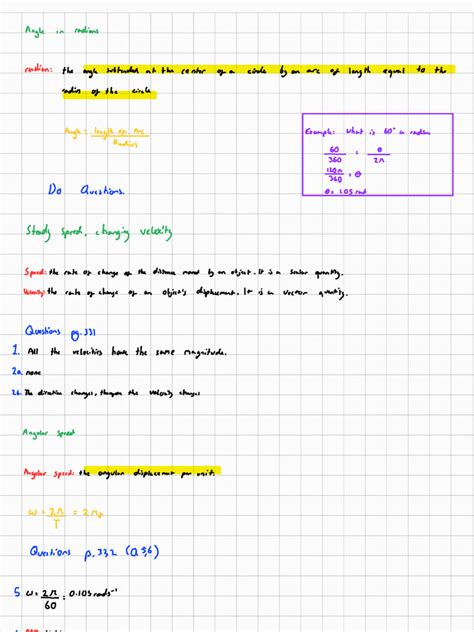 Angle in radians
radian: the angle subtended at the center of a circle by an arc of length equal to the
radius of the circle
Angle = length of Arc
Radius
Example: What is 60° in radians
60/360 = θ/2π
120π/360 = θ
θ = 1.05 rad
Do Questions.
Steady speed, changing velocity
Speed: the rate of change of the distance moved by an object. It is a scalar quantity.
Velocity: the rate of change of an object's displacement. It is a vector quantity.
Questions pg.331
1. All the velocities have the same magnitude.
2a. none
2b. The direction changes, the velocity changes
Angular speed
Angular speed: the angular displacement per unit.
ω = 2π/T = 2πf
Questions p.332 (Q 5,6)
5 ω = 2π/60 = 0.105 rads⁻¹